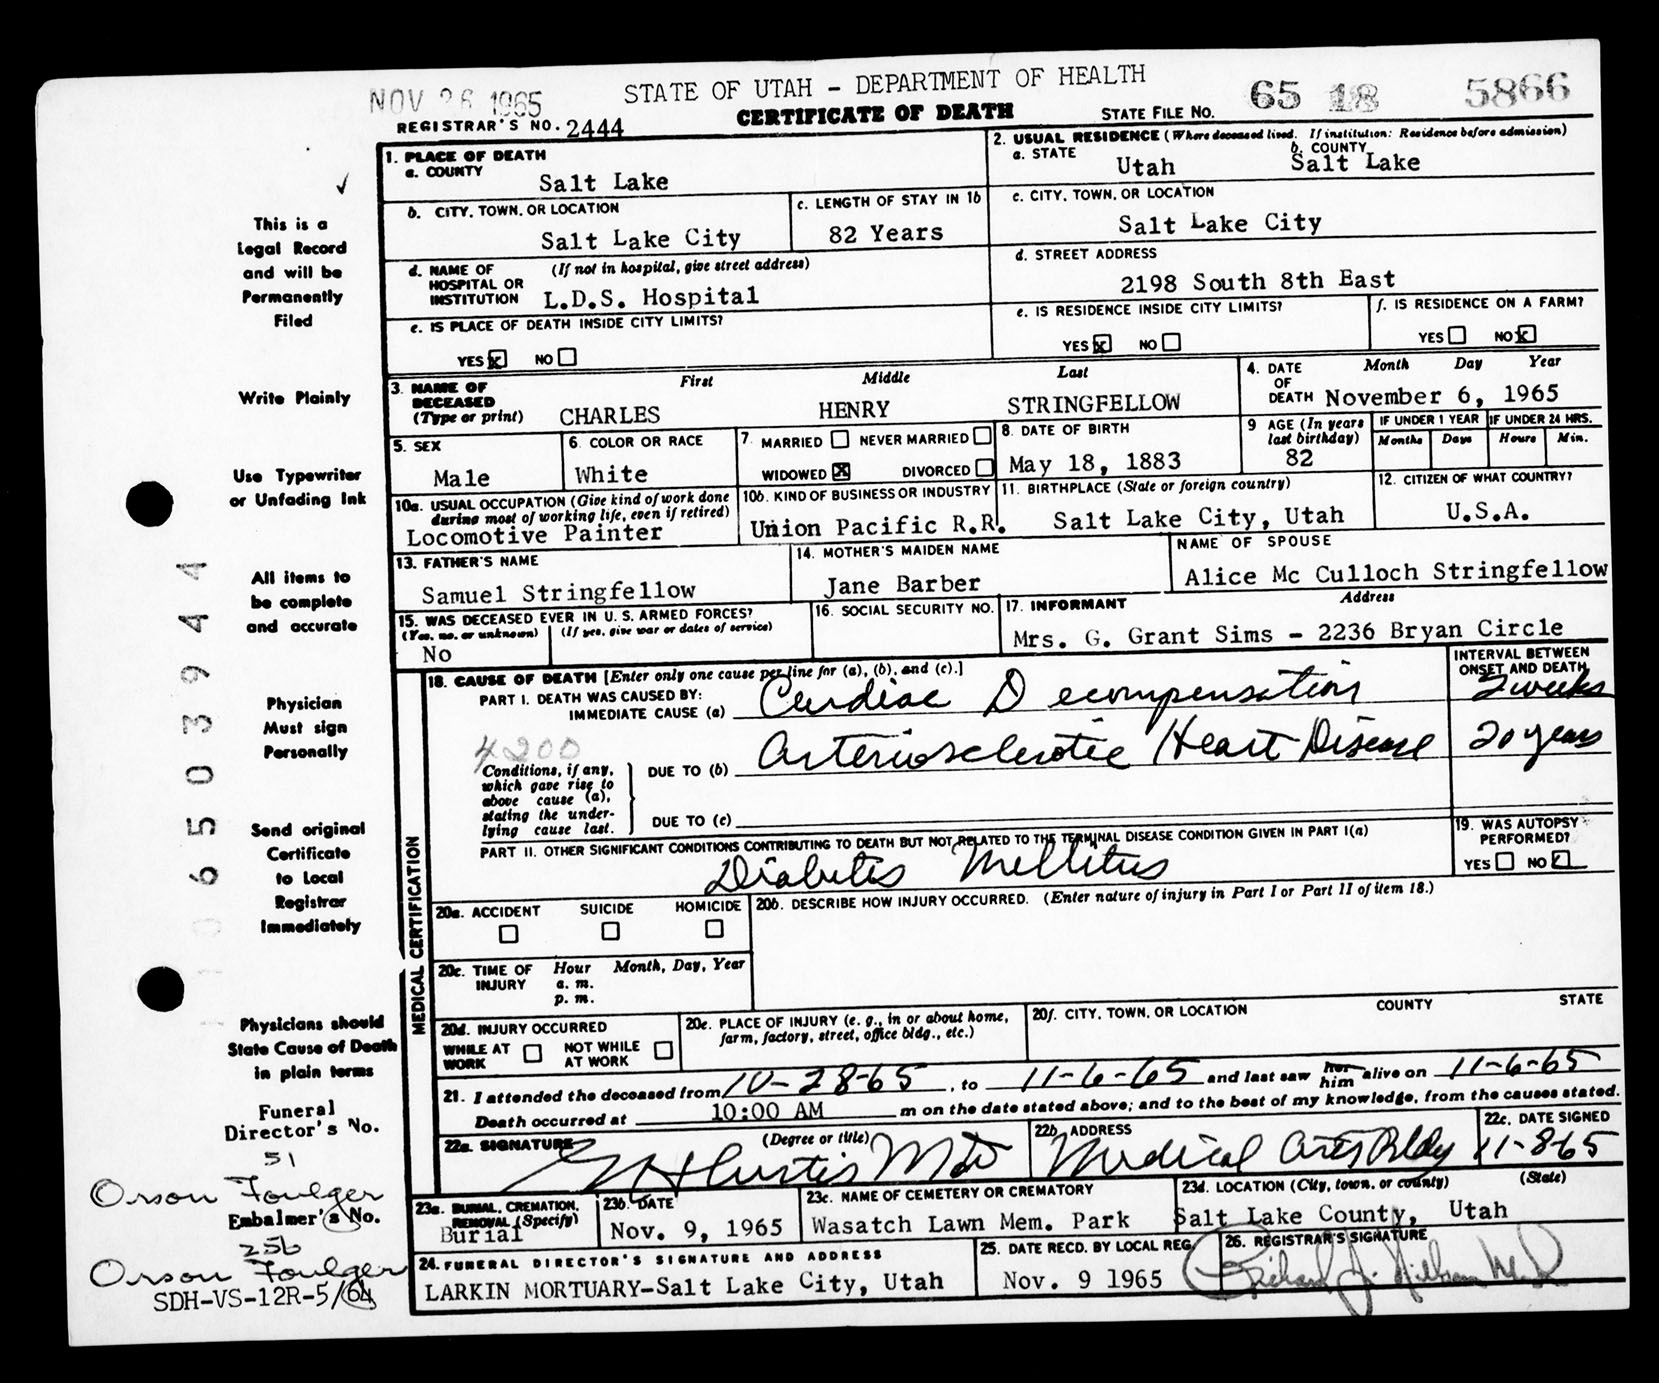 STATE OF UTAH - DEPARTMENT OF HEALTH
NOV 26 1965
CERTIFICATE OF DEATH
STATE FILE NO. 65 18 5866
REGISTRAR'S NO. 2444
1. PLACE OF DEATH
a. COUNTY
Salt Lake
2. USUAL RESIDENCE (Where deceased lived. If institution: Residence before admission)
a. STATE Utah
b. COUNTY Salt Lake
b. CITY, TOWN, OR LOCATION
Salt Lake City
c. LENGTH OF STAY IN 1b
82 Years
c. CITY, TOWN, OR LOCATION
Salt Lake City
d. NAME OF HOSPITAL OR INSTITUTION (If not in hospital, give street address)
L.D.S. Hospital
d. STREET ADDRESS
2198 South 8th East
e. IS PLACE OF DEATH INSIDE CITY LIMITS?
YES x NO
e. IS RESIDENCE INSIDE CITY LIMITS?
YES x NO
f. IS RESIDENCE ON A FARM?
YES NO x
3. NAME OF DECEASED (Type or print)
First Middle Last
CHARLES HENRY STRINGFELLOW
4. DATE OF DEATH Month Day Year
November 6, 1965
5. SEX
Male
6. COLOR OR RACE
White
7. MARRIED NEVER MARRIED
WIDOWED X DIVORCED
8. DATE OF BIRTH
May 18, 1883
9 AGE (In years last birthday)
82
IF UNDER 1 YEAR
Months Days
IF UNDER 24 HRS.
Hours Min.
10a. USUAL OCCUPATION (Give kind of work done during most of working life, even if retired)
Locomotive Painter
10b. KIND OF BUSINESS OR INDUSTRY
Union Pacific R.R.
11. BIRTHPLACE (State or foreign country)
Salt Lake City, Utah
12. CITIZEN OF WHAT COUNTRY?
U.S.A.
13. FATHER'S NAME
Samuel Stringfellow
14. MOTHER'S MAIDEN NAME
Jane Barber
NAME OF SPOUSE
Alice Mc Culloch Stringfellow
15. WAS DECEASED EVER IN U.S. ARMED FORCES?
(Yes, no, or unknown) (If yes, give war or dates of service)
No
16. SOCIAL SECURITY NO.
17. INFORMANT Address
Mrs. G. Grant Sims - 2236 Bryan Circle
MEDICAL CERTIFICATION
18. CAUSE OF DEATH [Enter only one cause per line for (a), (b), and (c).]
INTERVAL BETWEEN ONSET AND DEATH
PART I. DEATH WAS CAUSED BY:
IMMEDIATE CAUSE (a) Cardiac Decompensation 2 weeks
4200
Conditions, if any, which gave rise to above cause (a), stating the underlying cause last.
DUE TO (b) Arteriosclerotic Heart Disease 20 years
DUE TO (c)
PART II. OTHER SIGNIFICANT CONDITIONS CONTRIBUTING TO DEATH BUT NOT RELATED TO THE TERMINAL DISEASE CONDITION GIVEN IN PART I(a)
Diabetes Mellitus
19. WAS AUTOPSY PERFORMED?
YES NO
20a. ACCIDENT SUICIDE HOMICIDE
20b. DESCRIBE HOW INJURY OCCURRED. (Enter nature of injury in Part I or Part II of item 18.)
20c. TIME OF INJURY Hour Month, Day, Year
a. m.
p. m.
20d. INJURY OCCURRED
WHILE AT WORK NOT WHILE AT WORK
20e. PLACE OF INJURY (e. g., in or about home, farm, factory, street, office bldg., etc.)
20f. CITY, TOWN, OR LOCATION COUNTY STATE
21. I attended the deceased from 10-28-65, to 11-6-65 and last saw her him alive on 11-6-65
Death occurred at 10:00 AM m on the date stated above; and to the best of my knowledge, from the causes stated.
22a. SIGNATURE (Degree or title)
Curtis MD
22b. ADDRESS
Medical Arts Bldg
22c. DATE SIGNED
11-8-65
23a. BURIAL, CREMATION, REMOVAL (Specify)
Burial
23b. DATE
Nov. 9, 1965
23c. NAME OF CEMETERY OR CREMATORY
Wasatch Lawn Mem. Park
23d. LOCATION (City, town, or county) (State)
Salt Lake County, Utah
24. FUNERAL DIRECTOR'S SIGNATURE AND ADDRESS
LARKIN MORTUARY-Salt Lake City, Utah
25. DATE RECD. BY LOCAL REG.
Nov. 9 1965
26. REGISTRAR'S SIGNATURE
This is a
Legal Record
and will be
Permanently
Filed
Write Plainly
Use Typewriter
or Unfading Ink
All items to
be complete
and accurate
Physician
Must sign
Personally
Send original
Certificate
to Local
Registrar
Immediately
Physicians should
State Cause of Death
in plain terms
Funeral
Director's No.
51
Orson Foulger
Embalmer's No.
256
Orson Foulger
SDH-VS-12R-5/64
06503944